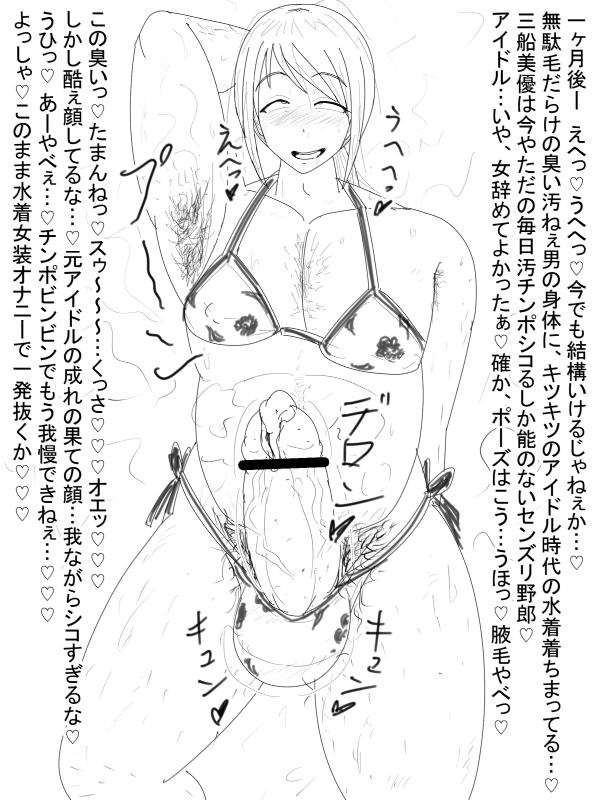 一ヶ月後ー　えへっ♡うへへっ♡今でも結構いけるじゃねぇか…♡
無駄毛だらけの臭い汚ねぇ男の身体に、キツキツのアイドル時代の水着着ちまってる…♡
三船美優は今やただの毎日汚チンポシコるしか能のないセンズリ野郎♡
アイドル…いや、女辞めてよかったぁ♡確か、ポーズはこう…うほっ♡腋毛やべっ♡
うへへっ♡
えへっ♡
プ〜ン
デロンッ♡
キュンッ♡
キュンッ♡
この臭いっ♡たまんねっ♡スゥ〜〜〜…くっさ♡♡♡オエッ♡♡♡
しかし酷ぇ顔してるな…♡元アイドルの成れの果ての顔…我ながらシコすぎるな♡
うひっ♡あーやべぇ…♡チンポビンビンでもう我慢できねぇ…♡♡♡
よっしゃ♡このまま水着女装オナニーで一発抜くか♡♡♡